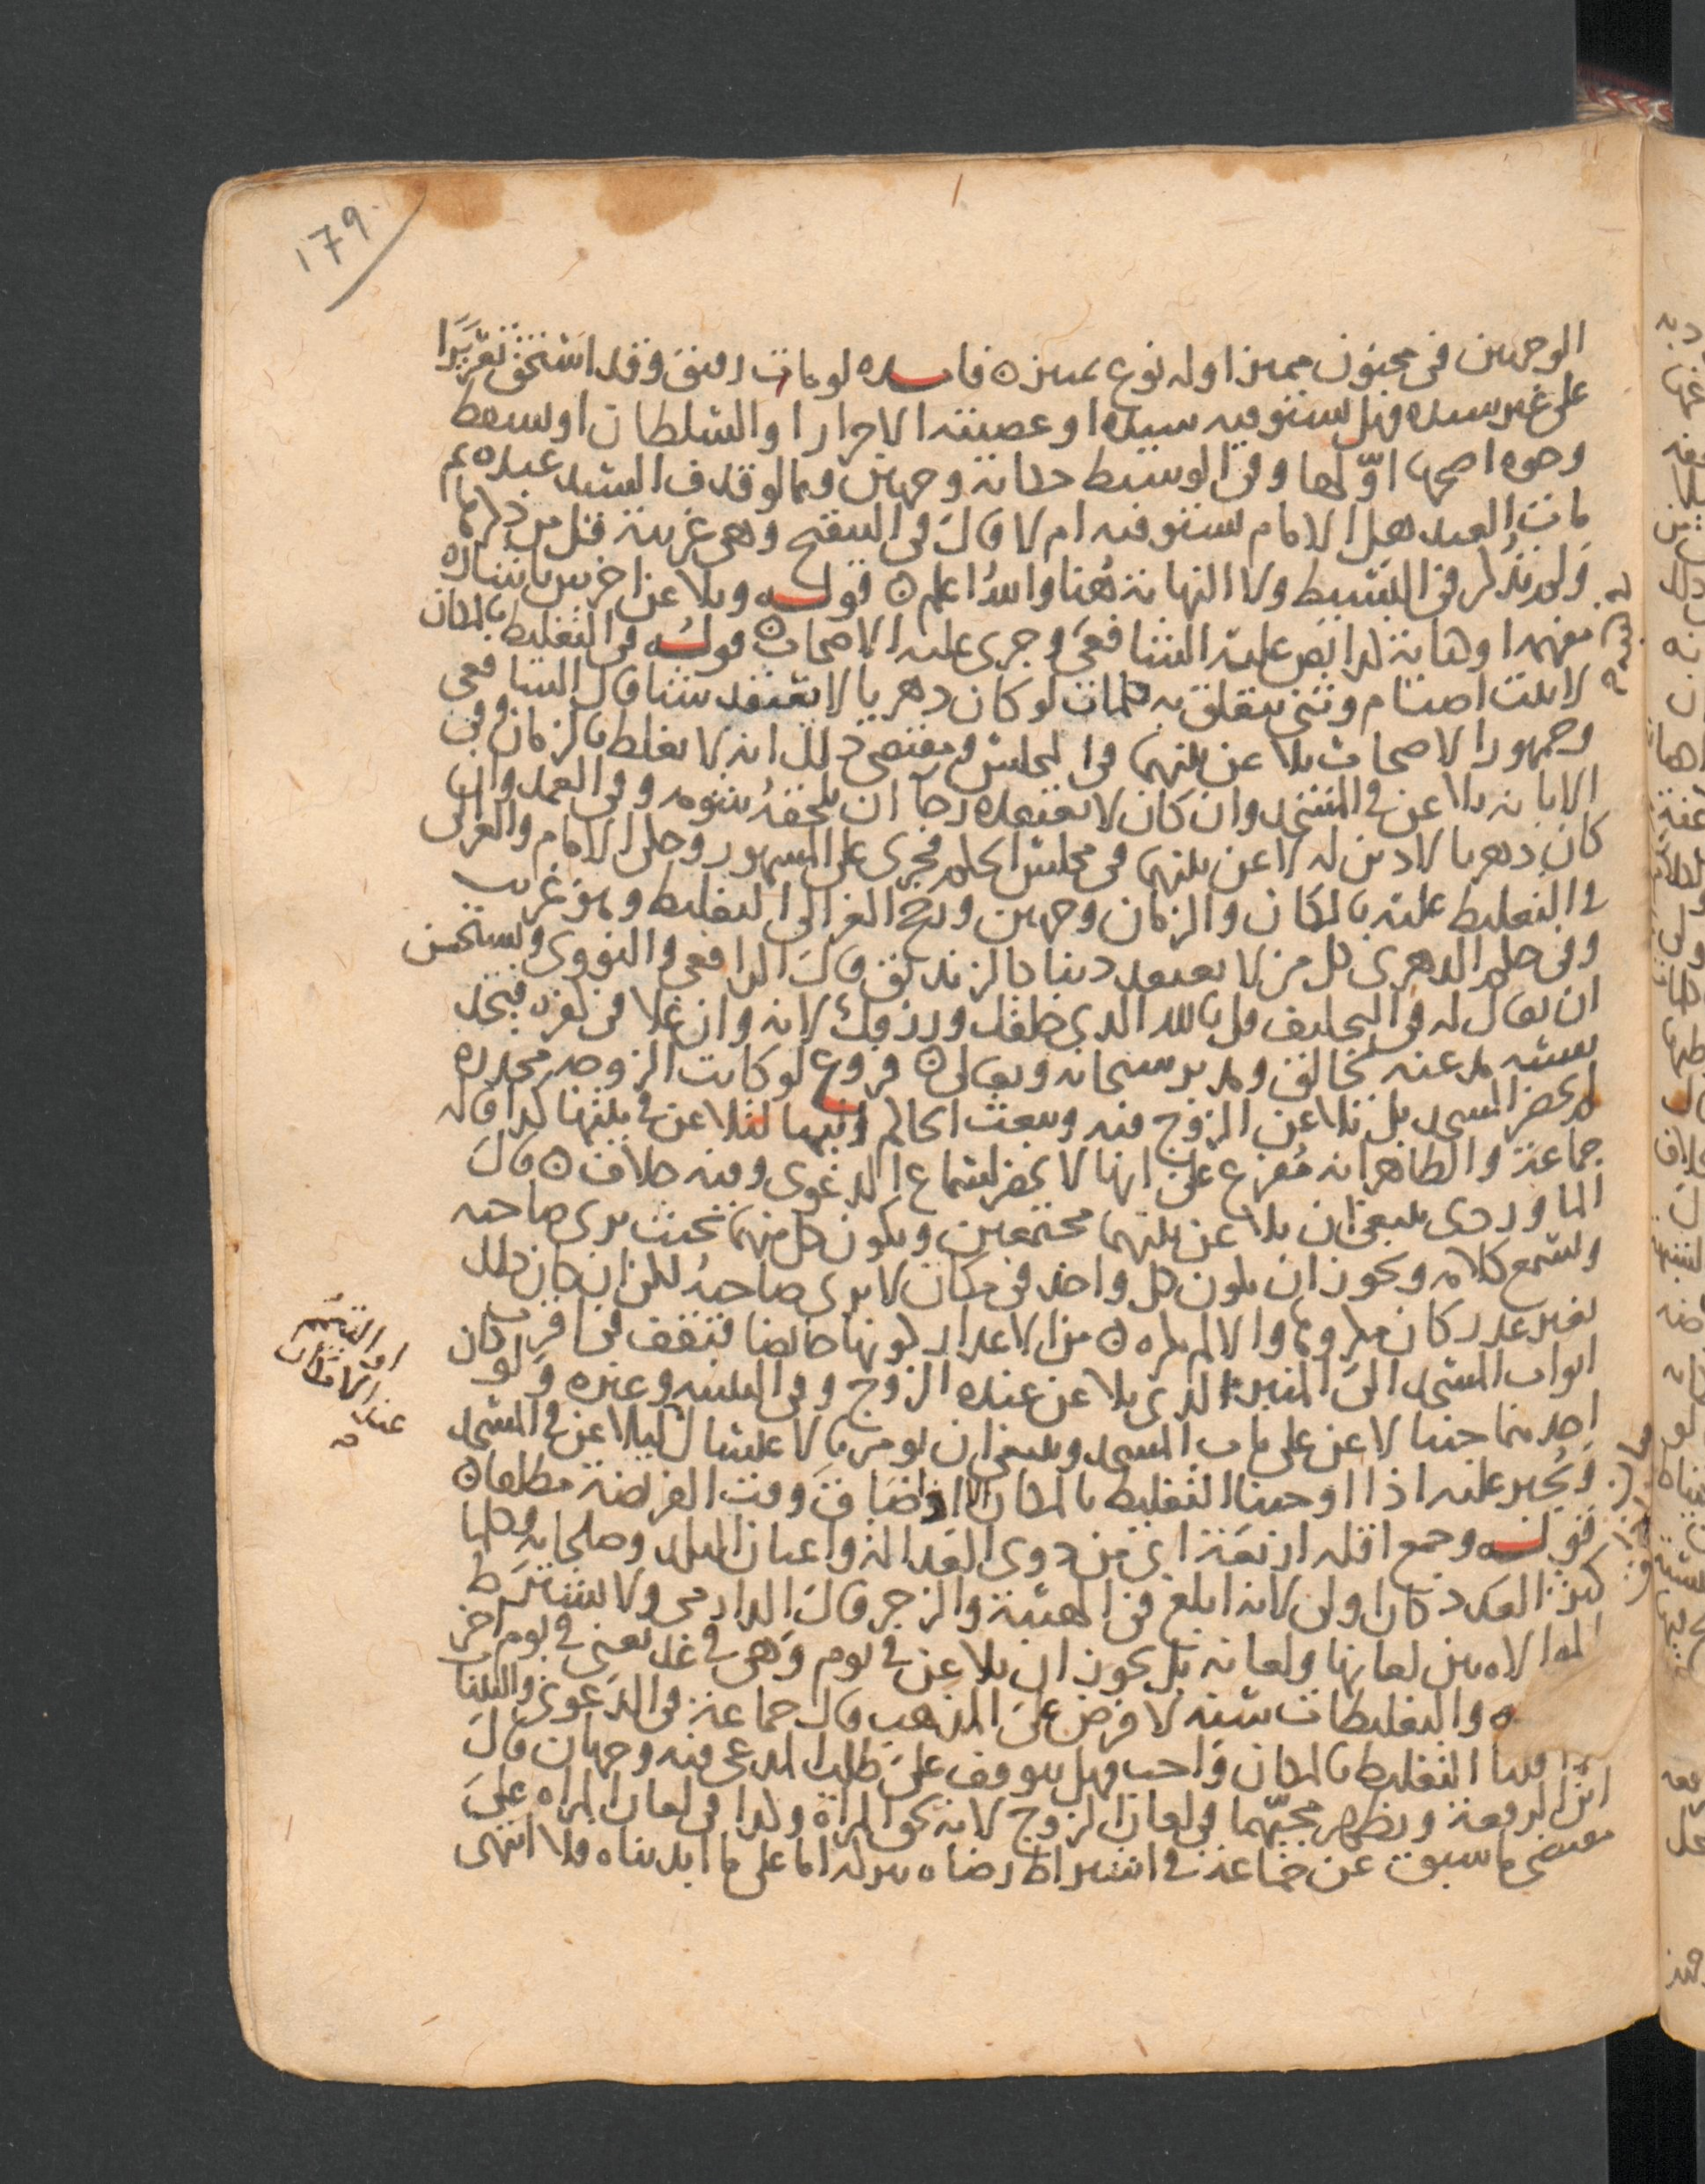 179
الوجهين في مجنون مميز اوله نوع تمييز ه فايده لو مات رقيق وقد استحق تعزيرا
على غير سيده فهل يستوفيه سيده او عصبته الاحرار او السلطان او يسقط
وجوه اصحها اولها وفي الوسيط حكاية وجهين فيما لو قذف السيد عبده ثم
مات العبد هل الامام يستوفيه ام لا قال في التنقيح وهي غريبة قل من ذكرها
ولم يذكر في البسيط ولا النهاية هنا والله اعلم ه قوله ويلاعن اخرس باشارة
مفهمة او كتابة كذا نص عليه الشافعي وجرى عليه الاصحاب ه قوله في التغليظ بالمكان
لا بيت اصنام وثني يتعلق به كلمات لو كان دهريا لا يعتقد شيئا قال الشافعي
وجمهور الاصحاب يلاعن بينهما في المجلس ومقتضى ذلك انه لا يغلظ بالزمان وفي
الابانة يلاعن في المسجد وان كان لا يعتقده رجا ان يلحقه شومه وفي العمد وان
كان دهريا لا دين له لاعن بينهما في مجلس الحكم فجرى على المشهور وحكى الامام والغزالي
في التغليظ عليه بالمكان والزمان وجهين ورجح الغزالي التغليظ وهو غريب
وفي حكم الدهري كل من لا يعتقد دينا كالزنديق قال الرافعي والنووي ويستحسن
ان يقال له في التحليف قل بالله الذي خلقك ورزقك لانه وان غلا في كفره فيجد
نفسه مذعنة لخالق ومدبر سبحانه وتعالى ه فروع لو كانت الزوجة مخدرة
لم تحضر المسجد بل يلاعن الزوج فيه ويبعث الحاكم اليها لتلاعن في بيتها كذا قاله
جماعة والظاهر انه مفرع على انها لا تحضر لسماع الدعوى وفيه خلاف ه قال
الماوردي ينبغي ان يلاعن بينهما مجتمعين ويكون كل منهما بحيث يرى صاحبه
ويسمع كلامه ويجوز ان يكون كل واحد في مكان لا يرى صاحبه لكن ان كان ذلك
لغير عذر كان مكروها والا لم يكره ه من الاعذار كونها حائضا فتقف في اقرب
ابواب المسجد الى المنبر الذي يلاعن عنده الزوج وفي البيت وغيره ولو كان
احدهما جنبا لاعن على باب المسجد وينبغي ان يومر بالاغتسال ليلاعن في المسجد
ويجبر عليه اذا اوجبنا التغليظ بالمكان الا اذا ضاق وقت الفريضة مطلقا ه
قوله وجمع اقله اربعة اي من ذوي العدالة واعيان البلد وصلحائه وكلما
كثر العدد كان اولى لانه ابلغ في الهيبة والزجر قال الدارمي ولا يشترط
الموالاه بين لعانها ولعانه بل يجوز ان يلاعن في يوم وهي في غد يعني في يوم اخر
والتغليظات سنة لا فرض على المذهب قال جماعة في الدعوى والبينات
قلنا التغليظ بالمكان واجب فهل يتوقف على طلب المدعي فيه وجهان قال
ابن الرفعة ويظهر مجيهما في لعان الزوج لانه بحق المراة وكذا في لعان المراه على
مقتضى ما سبق عن جماعة في اشتراط رضاه بذلك اما على ما ابديناه فلا انتهى
او التيمم
عند الامكان
صح